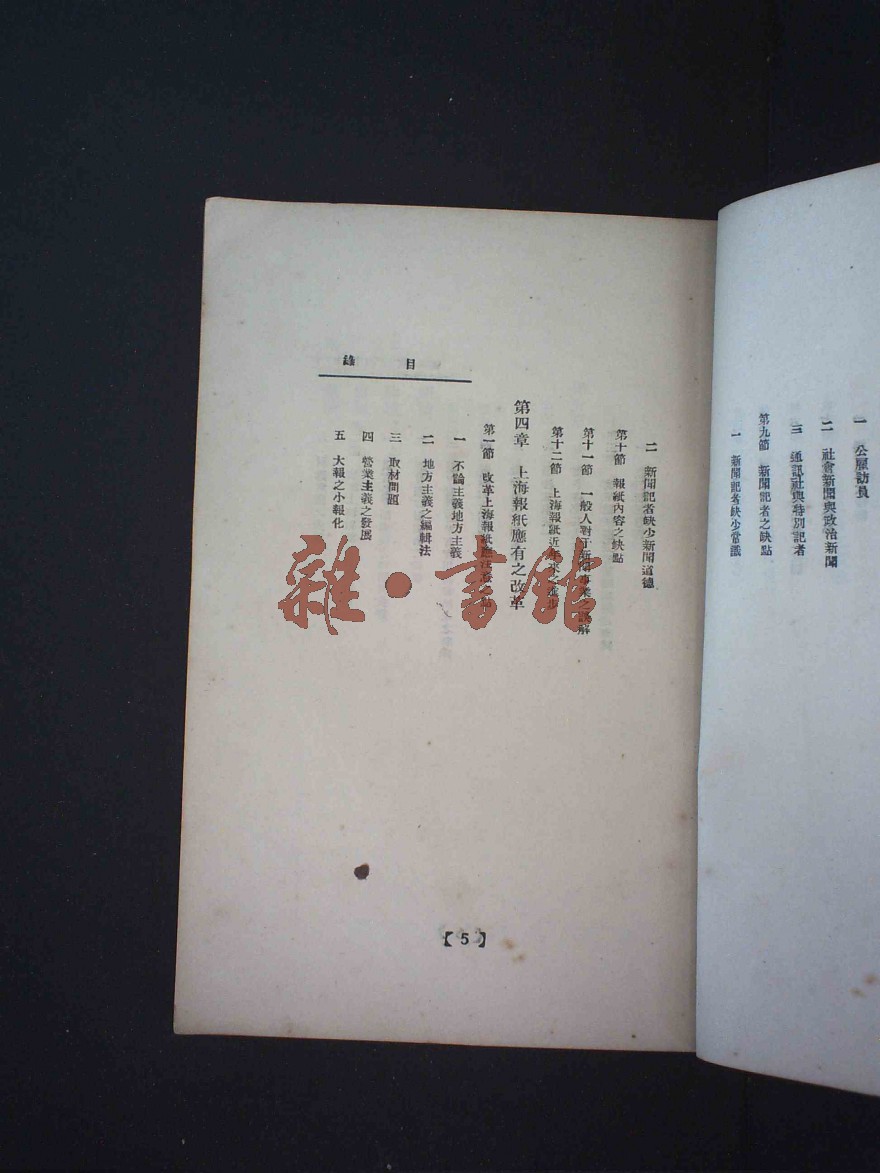 一 公雇訪員
二 社會新聞與政治新聞
三 通訊社與特別記者
第九節 新聞記者之缺點
一 新聞記者缺少常識
目錄
二 新聞記者缺少新聞道德
第十節 報紙內容之缺點
第十一節 一般人對于新聞事業之誤解
第十二節 上海報紙近年來之進步
第四章 上海報紙應有之改革
第一節 改革上海報紙應注意之點
一 不論主義地方主義
二 地方主義之編輯法
三 取材問題
四 營業主義之發展
五 大報之小報化
【5】
雜·書館